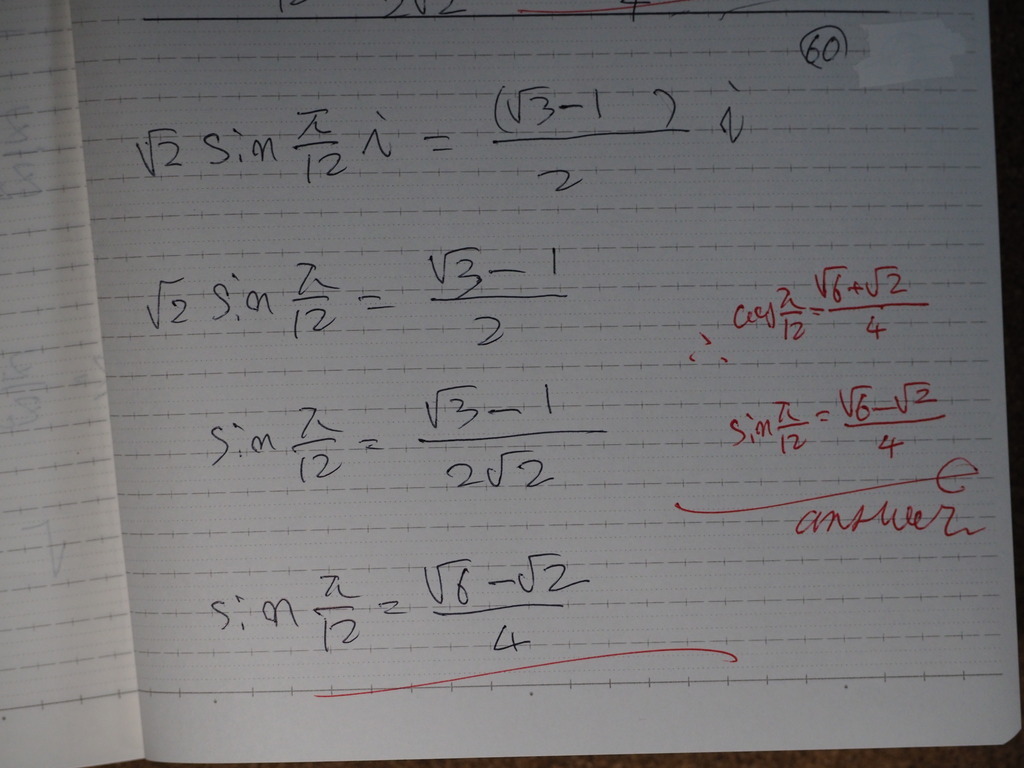 12 2√2 4
60
√2 sin π/12 i = (√3-1 )/2 i
√2 sin π/12 = √3-1/2
sin π/12 = √3-1/2√2
sin π/12 = √6-√2/4
∴ cos π/12 = √6+√2/4
sin π/12 = √6-√2/4
answer